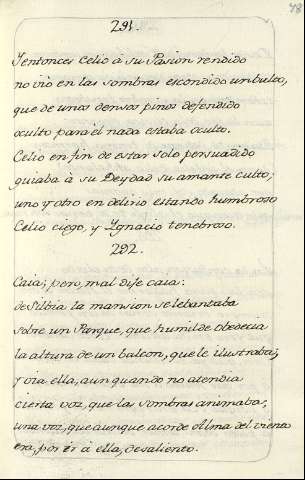 78
291.
Y entonces Celio à su Pasion rendido
no viò en las sombras escondido un bulto,
que de unos densos pinos defendido
oculto para èl nada estaba oculto.
Celio en fin de estar solo persuadido
guiaba à su Deydad su amante culto;
uno y otro en delirio estando humbroso
Celio ciego, y Ygnacio tenebroso.
292.
Caia; pero, mal dije caia:
de Silbia la mansion se lebantaba
sobre un Parque, que humilde obedecia
la altura de un balcon, que le ilustraba;
y oia ella, aun quando no atendia
cierta voz, que las sombras animaba;
una voz, que aunque acorde Alma del viento
era, por ir à ella, desaliento.